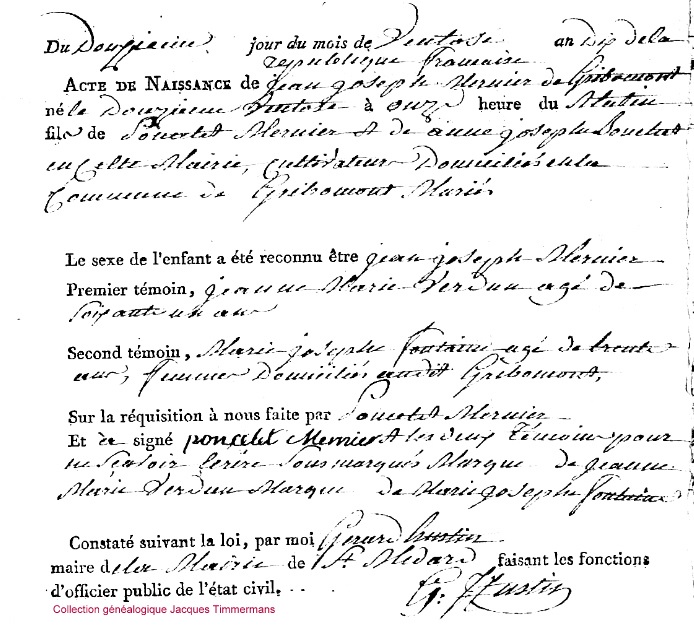 Du Douzieme jour du mois de Ventose an Dix de la
republique francaise
ACTE DE NAISSANCE de jean joseph Mernier de Gribomont
né le Douzieme Ventose à onze heure du Matin
fils de Poncelet Mernier & de anne joseph
en Cette Mairie, cultivateurs Domiciliés en la
Commune de Gribomont Mariés
Le sexe de l'enfant a été reconnu être jean joseph Mernier
Premier témoin, jeanne Marie Verdun agé de
soixante un ans
Second témoin, Marie joseph fontaine agé de trente
ans, femmes Domiciliés audit Gribomont,
Sur la réquisition à nous faite par Poncelet Mernier
Et a signé poncelet Mernier & les deux témoins pour
ne scavoir Ecrire sousmarqués Marque de jeanne
Marie Verdun Marque de Marie joseph fontaine
Constaté suivant la loi, par moi Gerard hustin
maire de la Mairie de St Medard faisant les fonctions
d'officier public de l'état civil.
G. Hustin
Collection généalogique Jacques Timmermans